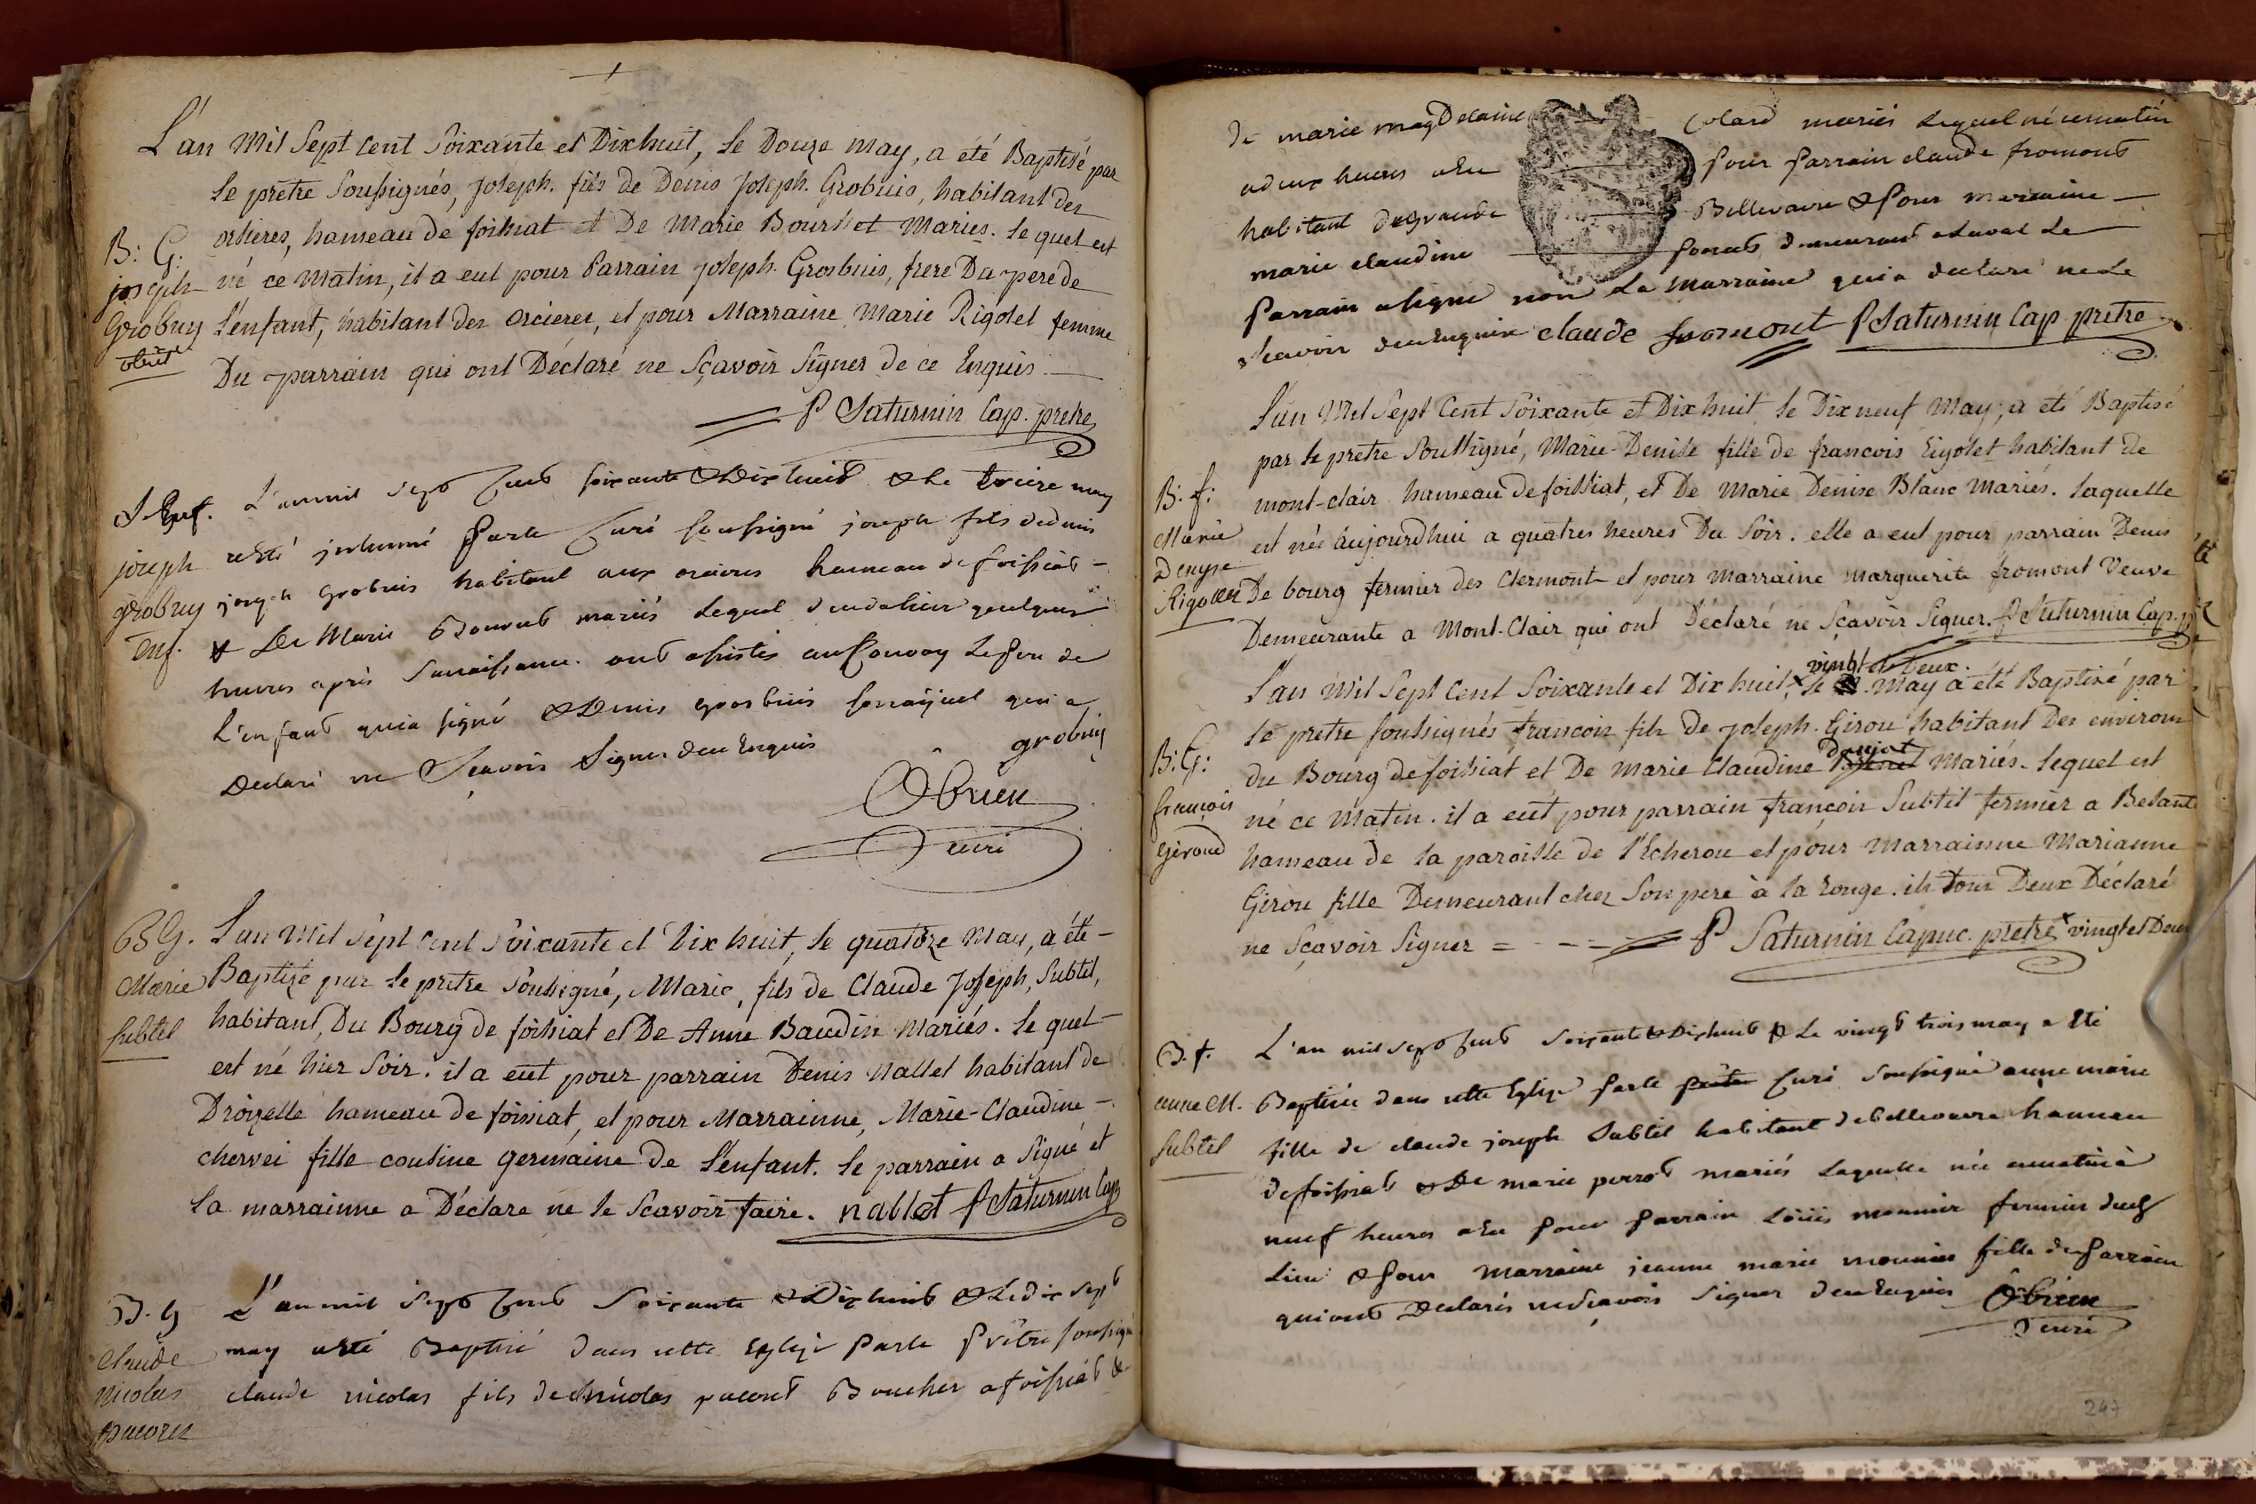 L'an Mil Sept Cent Soixante et Dixhuit, le Douze may, a eté Baptisé par
le prêtre Soussignés, Joseph. fils de Denis Joseph. Grobuis, habitant des
orsieres, hameau de foissiat et De Marie Bourset Mariés. le quel est
né ce Matin, il a eut pour Parrain Joseph. Grosbuis, frere Du pere de
L'enfant, habitant des orcieres, et pour Marraine Marie Rigolet femme
Du parrain qui ont Déclaré ne Sçavoir Signer de ce Enquis
P Saturnin Cap. pretre
B: G:
joseph
Grobuy
obiit
L'an mil sept Cent soixante & Dixhuit & le treize may
a esté inhumé par le Curé soussigné joseph fils de denis
joseph Grobuis habitant aux orcieres hameau de foissiat
& De Marie Bourset mariés lequel décédé hier quelques
heures après sa naissance. ont assistés au Convoy le pere de
L'enfant qui a signé & Denis grosbuis son ayeul qui a
Declaré ne Sçavoir Signer de ce Enquis
grobuis
Obrien
Curé
S Enf.
joseph
grobuy
Enf.
L'an Mil sept Cent Soixante et Dix huit, le quatorze May, a été
Baptizé par le pretre Soussigné, Marie, fils de Claude Joseph, Subtil,
habitant, Du Bourg de foissiat et De Anne Baudin Mariés. le quel
est né hier Soir. il a eut pour parrain Denis Nallet habitant de
Droizelle hameau de foissiat, et pour Marrainne, Marie-Claudine
chervei fille cousine germaine de L'enfant. le parrain a Signé et
la marrainne a Déclaré ne le Scavoir faire. nallet P Saturnin Cap
B G.
Marie
Subtil
L'an mil sept Cent Soixante & Dixhuit & le dix sept
may a esté Baptisé dans cette Eglise par le Prêtre soussigné
claude nicolas fils de nicolas pacoret Boucher a foissiat &
B. G
Claude
Nicolas
pacoret
de marie magdelaine Colard mariés Lequel né ce matin
a deux heures a eu pour Parrain claude fromont
habitant de grande Bellevavre & pour marraine
marie claudine ponet demeurant a laval Le
Parrain a signé non La marraine qui a declaré ne Le
sçavoir de ce Enquise claude fromont P Saturnin Cap. pretre
L'an Mil Sept Cent Soixante et Dix huit le Dix neuf May, a été Baptisé
par le pretre Soussigné, Marie-Denise fille de francois Rigolet habitant de
mont-clair hameau de foissiat, et De Marie Denise Blanc Mariés. laquelle
est née aujourdhui a quatres heures Du Soir. elle a eut pour parrain Denis
De bourg fermier des Clermont et pour Marraine marguerite fromont Veuve
Demeurante a Mont-Clair qui ont Déclaré ne Sçavoir Signer. P Saturnin Cap.
B: f:
Marie
Denyse
Rigollet
vingt et Deux.
L'an Mil Sept Cent Soixante et Dix huit, le may a été Baptisé par
le pretre soussignés francois fils de Joseph. Girou habitant Des environs
du Bourg de foissiat et De Marie Claudine danjat Mariés. lequel est
né ce Matin. il a eut pour parrain françois Subtil fermier a Besant
hameau de la paroisse de l'Echerou et pour Marrainne Marianne
Girou fille Demeurant chez Son pere à la Ronge. ils tous Deux Déclaré
ne sçavoir Signer P Saturnin Capuc. pretre vingt et Deux
B: G:
françois
Giroud
L'an mil sept Cent Soixante & Dixhuit & Le vingt trois may a Eté
Baptisée dans cette Eglise par le Curé soussigné anne marie
fille de claude joseph Subtil habitant de bellevavre hameau
de foissiat & De marie perrot mariés Laquelle née ce matin à
neuf heures a eu pour Parrain Loüis meunier fermier dud
Lieu & pour Marraine jeanne marie mounier fille du Parrain
qui ont Declarés ne Sçavoir signer de ce Enquis Obrien
Curé
B. f.
anne M.
Subtil
247